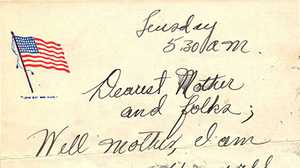 Tuesday
5:30 a.m.
Dearest Mother
and folks;
Well mother, I am